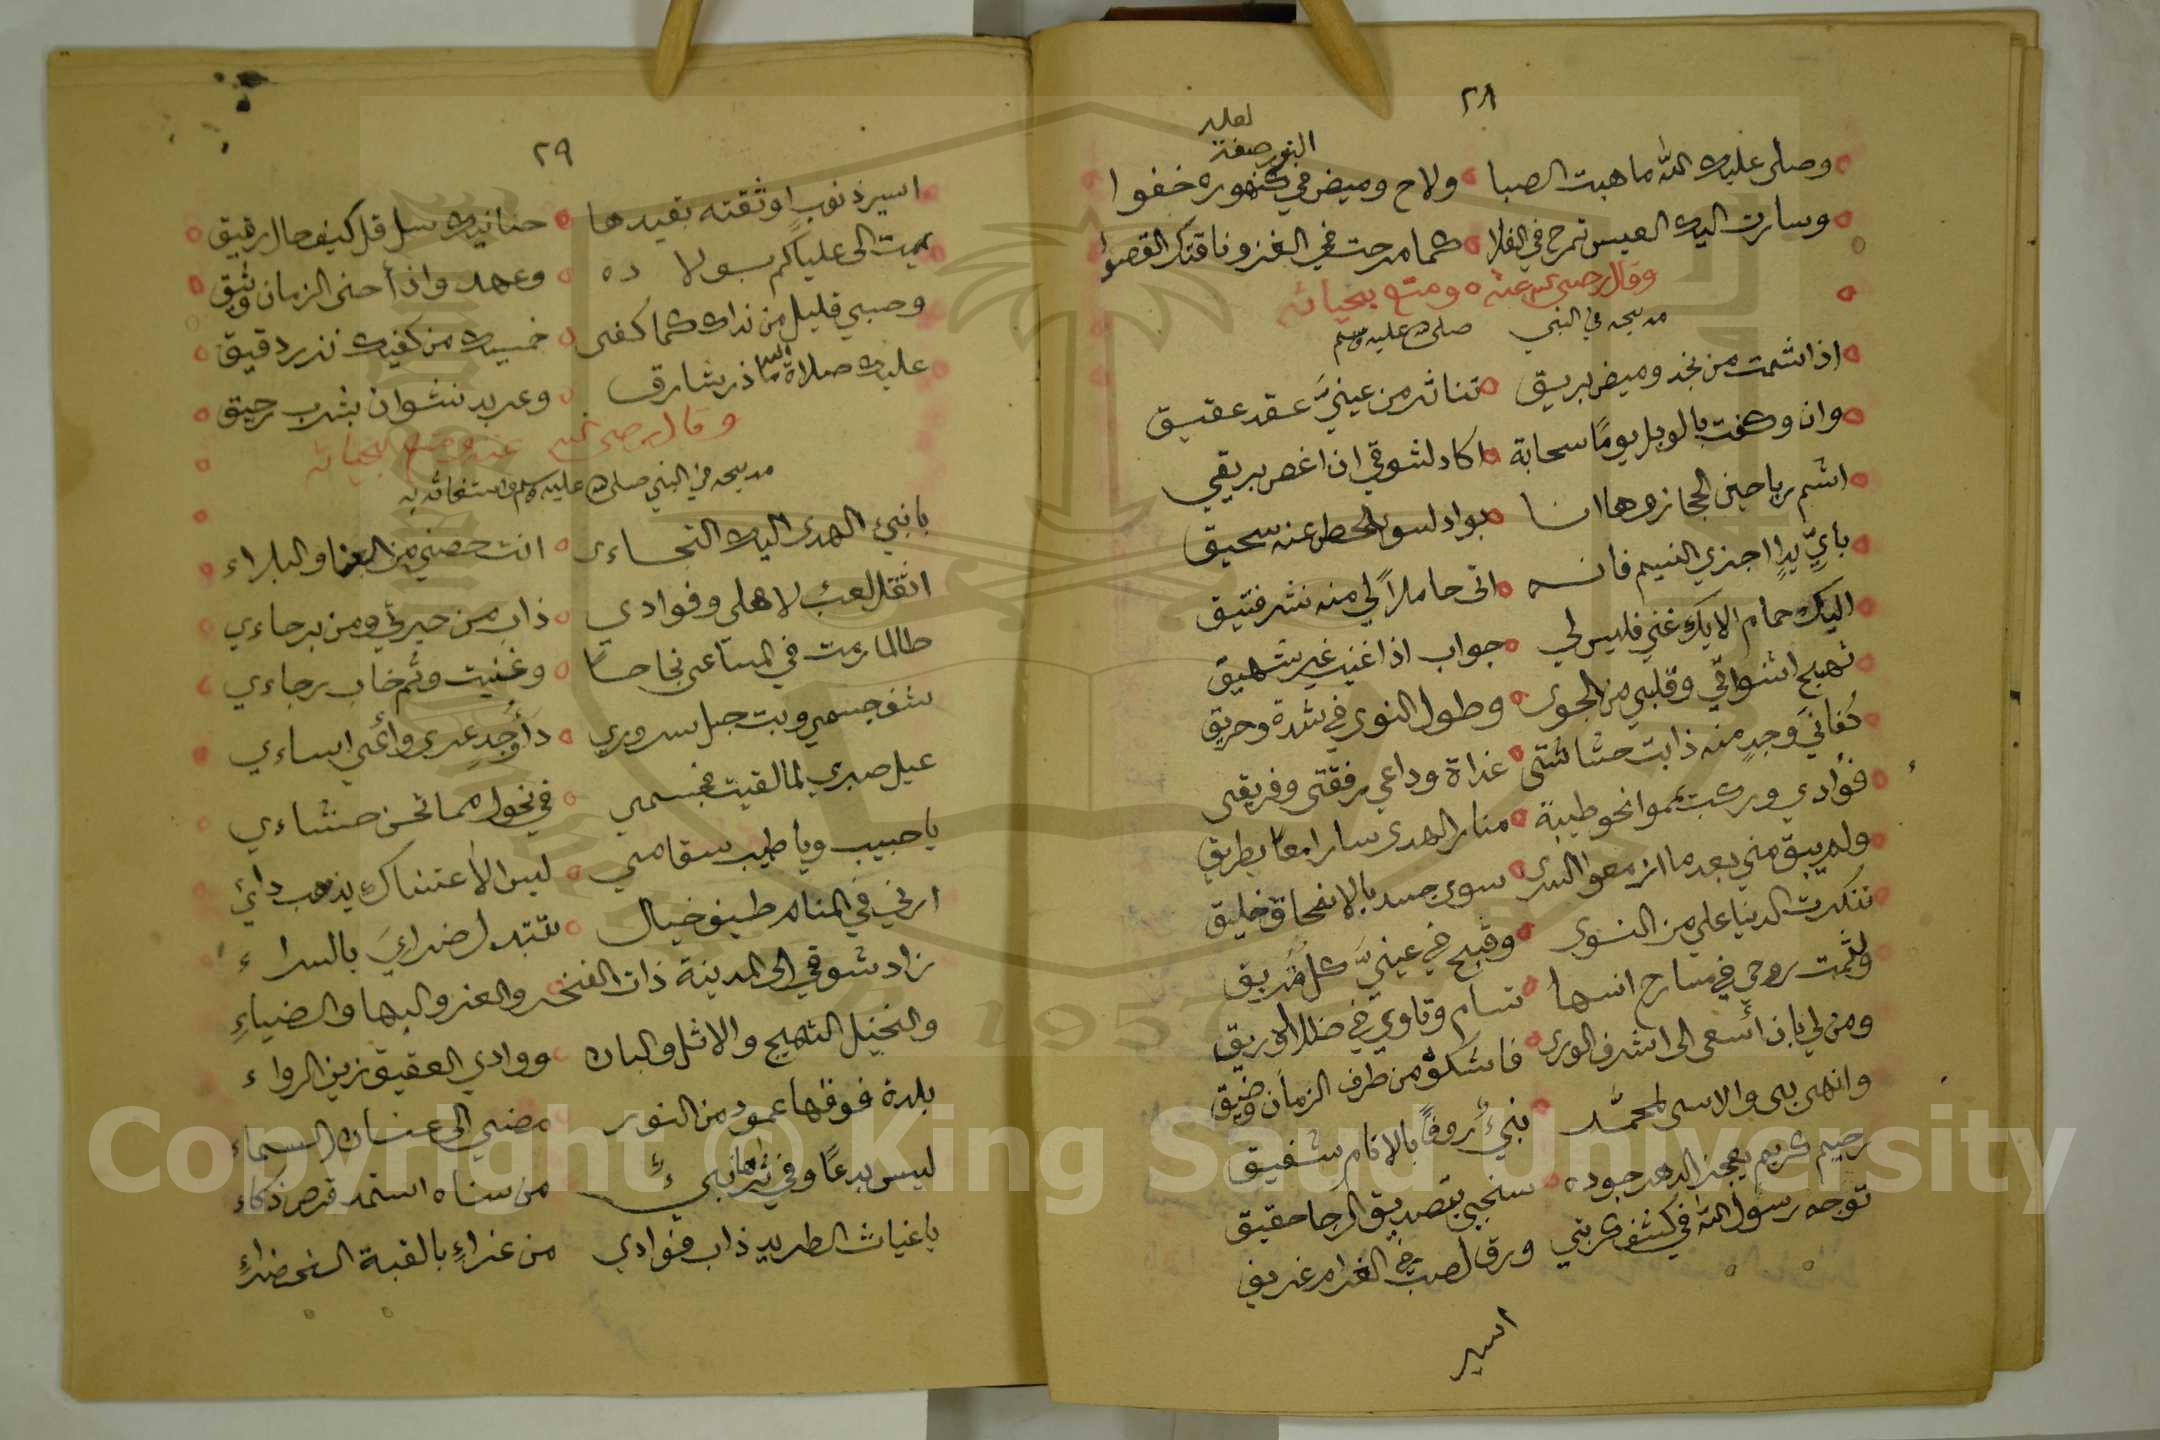 ٢٨
لعله
النور صفة
وصلى عليك الله ما هبت الصبا ولاح وميض في كنهوره خفوا
وسارت اليك العيس تمرح في الفلا كما مرحت في الغزو ناقتك القصوا
وقال رضي الله عنه ومتع بحياته
مديحه في النبي صلى الله عليه وسلم
اذا شمت من نجد وميض بريق تناثر من عينيّ عقد عقيق
وان وكفت بالوبل يومًا سحابة اكاد لشوقي ان اغص بريقي
اشم رياحين الحجاز وها انا بواد لسوء الحظ عنه سحيق
بايّ يدٍ اجزي النسيم فانه اتى حاملاً لي منه نشر فتيق
اليك حمام الايك غني فليس لي جواب اذا غنيت غير شهيق
تهيج اشواقي وقلبي من الجوى وطول النوى في شدة وحريق
كفاني وجد منه ذابت حشاشتي غداة وداعي رفقتي وفريقي
فؤادي وركب يمموا نحو طيبة منار الهدى سارا معًا بطريق
ولم يبق مني بعد ما ازمعوا السرى سوى جسد بالانمحاق خليق
تنكرت الدنيا علي من النوى وقبح في عينيّ كل
روحي في مسارح انسها تسام وتاوي في ظلال وريق
ومن لي بان أسعى الى اشرف الورى فاشكو من طرف الزمان وضيق
وانهى بثي والاسى لمحمّد نبيّ رؤفًا بالانام شفيق
رحيم كريم يعجز الدهر جوده سنجيّ بتصديق الرجا حقيق
توجه رسول الله في كشف كربتي ورق لصب في الغرام غريق
اسير
٢٩
اسير ذنوب اوثقته بقيدها حنانيك سل قل كيف حال رقيق
يميت الى عليائكم بولا ده وعهد وان أخنى الزمان وثيق
وحسبي قليل من نداك كما كفى خميسك من كفيك نزر دقيق
عليك صلاة الله ما ذر شارق وعربد نشوان بشرب رحيق
وقال رضي الله عنه ومتع بحياته
مديحه في النبي صلى الله عليه وسلم واستغاثه به
يا نبي الهدى اليك التجاءي انت حصني من العنا والبلاء
اثقل العبئ لاهلي وفوادي ذاب من حيرتي ومن برحاءي
طالما رمت في المساعي نجاحًا وعُنيت وثم خاب رجاءي
شف جسمي وبت حبل سروري دأ وجد عرى وأعيى اساءي
عيل صبري لما لقيت فجسمي في نحول مما تجن حشاءي
يا حبيب ويا طبيب سقامي ليس الا عتناك يذهب دائ
ارني في المنام طيف خيال تتبدل ضراءي بالسراء
زاد شوقي الى المدينة ذات الفخر والعز والبها والضياءِ
والنخيل البهيج والاثل والبان ووادي العقيق زين الرواء
بلدة فوقها عمود من النور مضيى الى عنان السماء
ليس بدعًا وفي ثراها نبيّ من سناه استمد قرص ذكاء
يا غياث الطريد ذاب فؤادي من غرامٍ بالقبة الخضراءِ